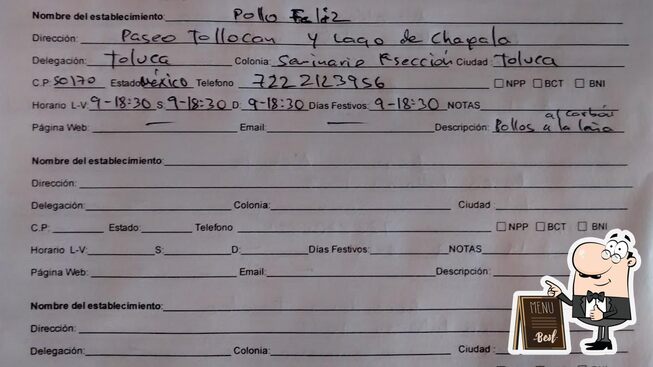 Nombre del establecimiento: Pollo Feliz
Dirección: Paseo Tollocan y Lago de Chapala
Delegación: Toluca Colonia: Seminario Ciudad: Toluca
C.P: 50170 Estado: México Telefono 7222123956 NPP BCT BNI
Horario L-V: 9-18:30 S: 9-18:30 D: 9-18:30 Días Festivos: 9-18:30 NOTAS
al carbón
Página Web: — Email: — Descripción: Pollos a la leña
Nombre del establecimiento:
Dirección:
Delegación: Colonia: Ciudad:
C.P: Estado: Telefono NPP BCT BNI
Horario L-V: S: D: Días Festivos: NOTAS
Página Web: Email: Descripción:
Nombre del establecimiento:
Dirección:
Delegación: Colonia: Ciudad:
MENU
Best